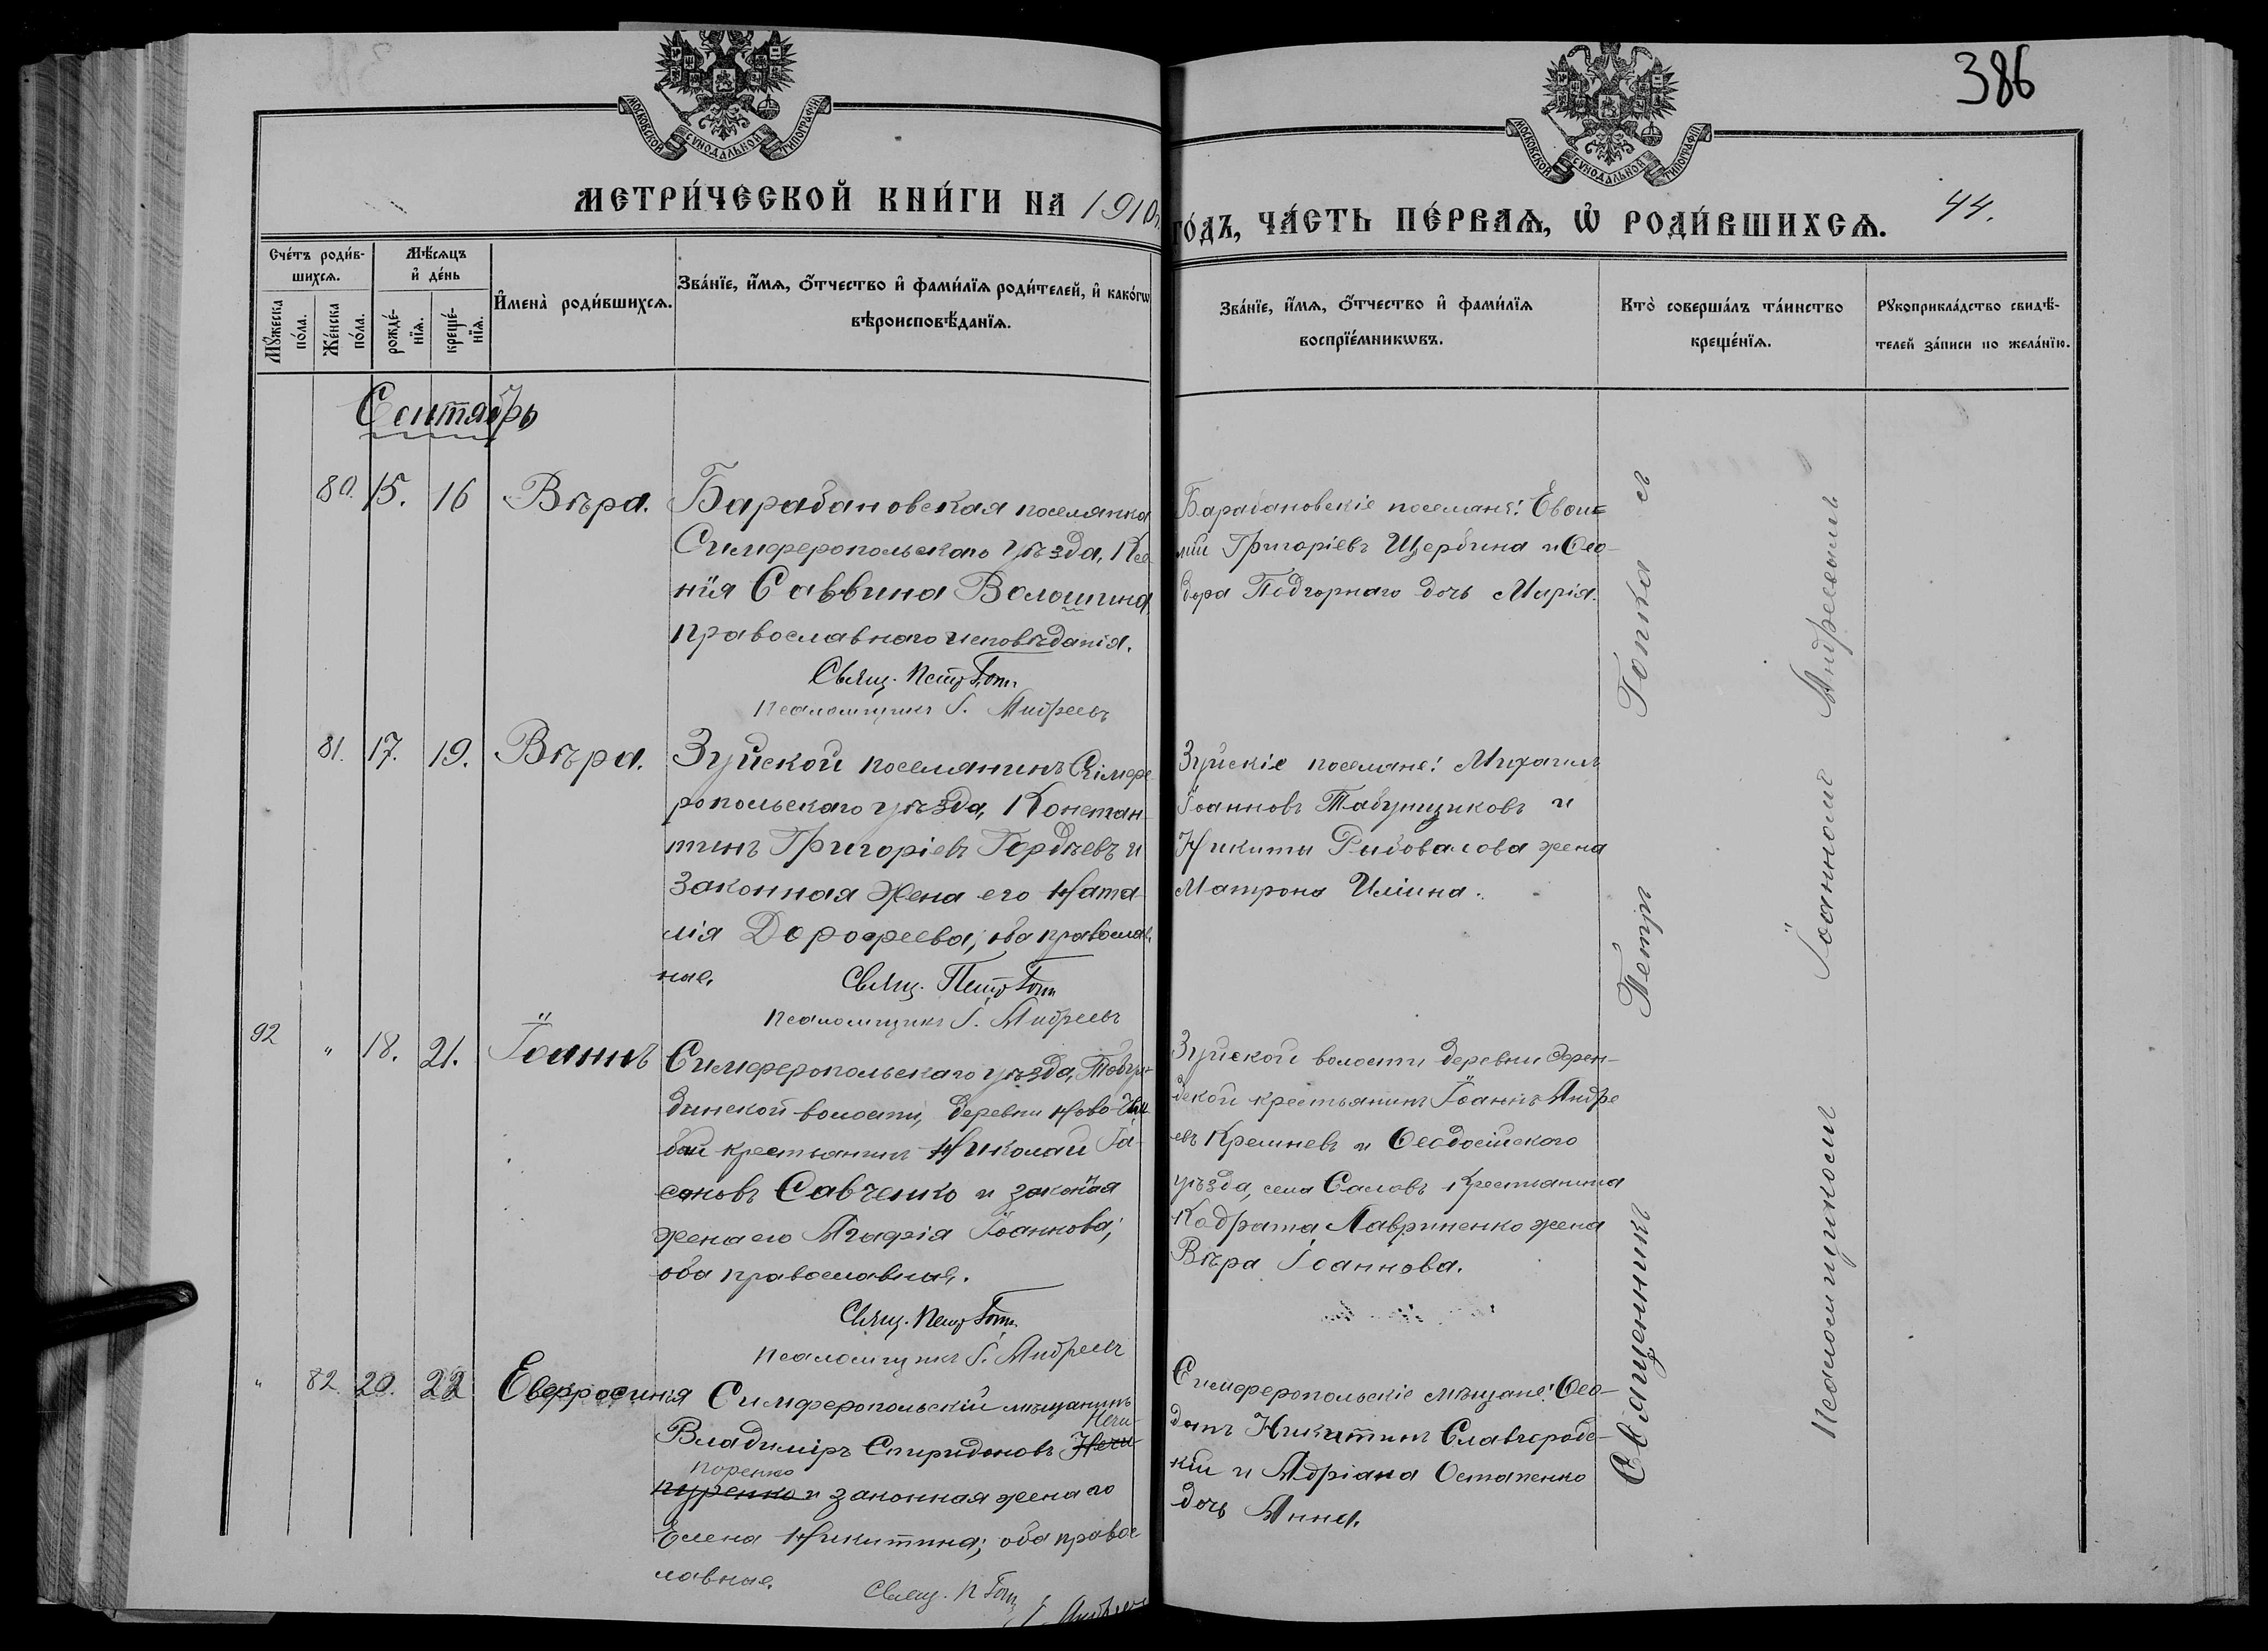 386
МОСКОВСКОЙ СѴНОДАЛЬНОЙ ТИПОГРАФІИ
МОСКОВСКОЙ СѴНОДАЛЬНОЙ ТИПОГРАФІИ
МЕТРИ́ЧЕСКОЙ КНИ́ГИ НА 1910
ГО́ДЪ, ЧА́СТЬ ПЕ́РВАѦ, Ѿ РОДИ́ВШИХСѦ.
44.
Сче́тъ роди́в-
шихсѧ.
Мꙋ́жеска
по́ла.
Же́нска
по́ла.
Мѣ́сѧцъ
и҆ де́нь
рожде́-
нїѧ.
креще́-
нїѧ.
И҆мена̀ роди́вшихсѧ.
Зва́нїе, и҆́мѧ, ѻ҆́тчество и҆ фами́лїѧ роди́телей, и҆ како́гѡ
вѣроисповѣ́данїѧ.
Зва́нїе, и҆́мѧ, ѻ҆́тчество и҆ фами́лїѧ
воспрїе́мникѡвъ.
Кто̀ соверша́лъ та́инство
креще́нїѧ.
Рꙋкоприкла́дство свидѣ́-
телей за́писи по жела́нїю.
Сентябрь
80. 15. 16 Вѣра.
Барабановская поселянка
Симферопольскаго уѣзда, Ксе-
нія Саввина Волошина
православнаго исповѣданія.
Свящ. Петр Гоп
Псаломщикъ І. Андреевъ
Барабановскіе поселяне: Евѳи=
мій Григоріевъ Щербина и Ѳео-
дора Подгорнаго дочь Марія.
81. 17. 19. Вѣра.
Зуйской поселянинъ Симфе-
ропольскаго уѣзда, Констан-
тинъ Григоріевъ Гордѣевъ и
законная жена его Ната-
лія Дорофеева; оба православ-
ные.
Свящ. Петр Гоп
Псаломщикъ І. Андреевъ
Зуйскіе поселяне: Михаилъ
Іоанновъ Табунщиковъ и
Никиты Рыбовалова жена
Матрона Иліина.
92 " 18. 21. Іоаннъ
Симферопольскаго уѣзда, Табул-
динской волости, деревни Ново-
бай крестьянинъ Николай Іа-
соновъ Савченко и законная
жена его Агафія Іоаннова;
оба православные.
Свящ. Петр Гоп
Псаломщикъ І. Андреевъ
Зуйской волости деревни Эфен-
деской крестьянинъ Іоаннъ Андре
евъ Кремневъ и Ѳеодосійскаго
уѣзда, села Саловъ крестьянина
Кодрата Лавриненко жена
Вѣра Іоаннова.
" 82. 20. 22 Евфросинія
Симферопольскій мѣщанинъ
Нечи-
Владиміръ Спиридоновъ Нечи-
поренко
пуренко и законная жена его
Елена Никитина; оба правос-
лавные.
Свящ. П Гоп
І. Андреевъ
Симферопольскіе мѣщане: Ѳео-
данъ Никитинъ Славгородс-
кій и Адріана Остапенко
дочь Анна.
Священникъ Петръ Гопка съ
Псаломщикомъ Іоанномъ Андреевымъ